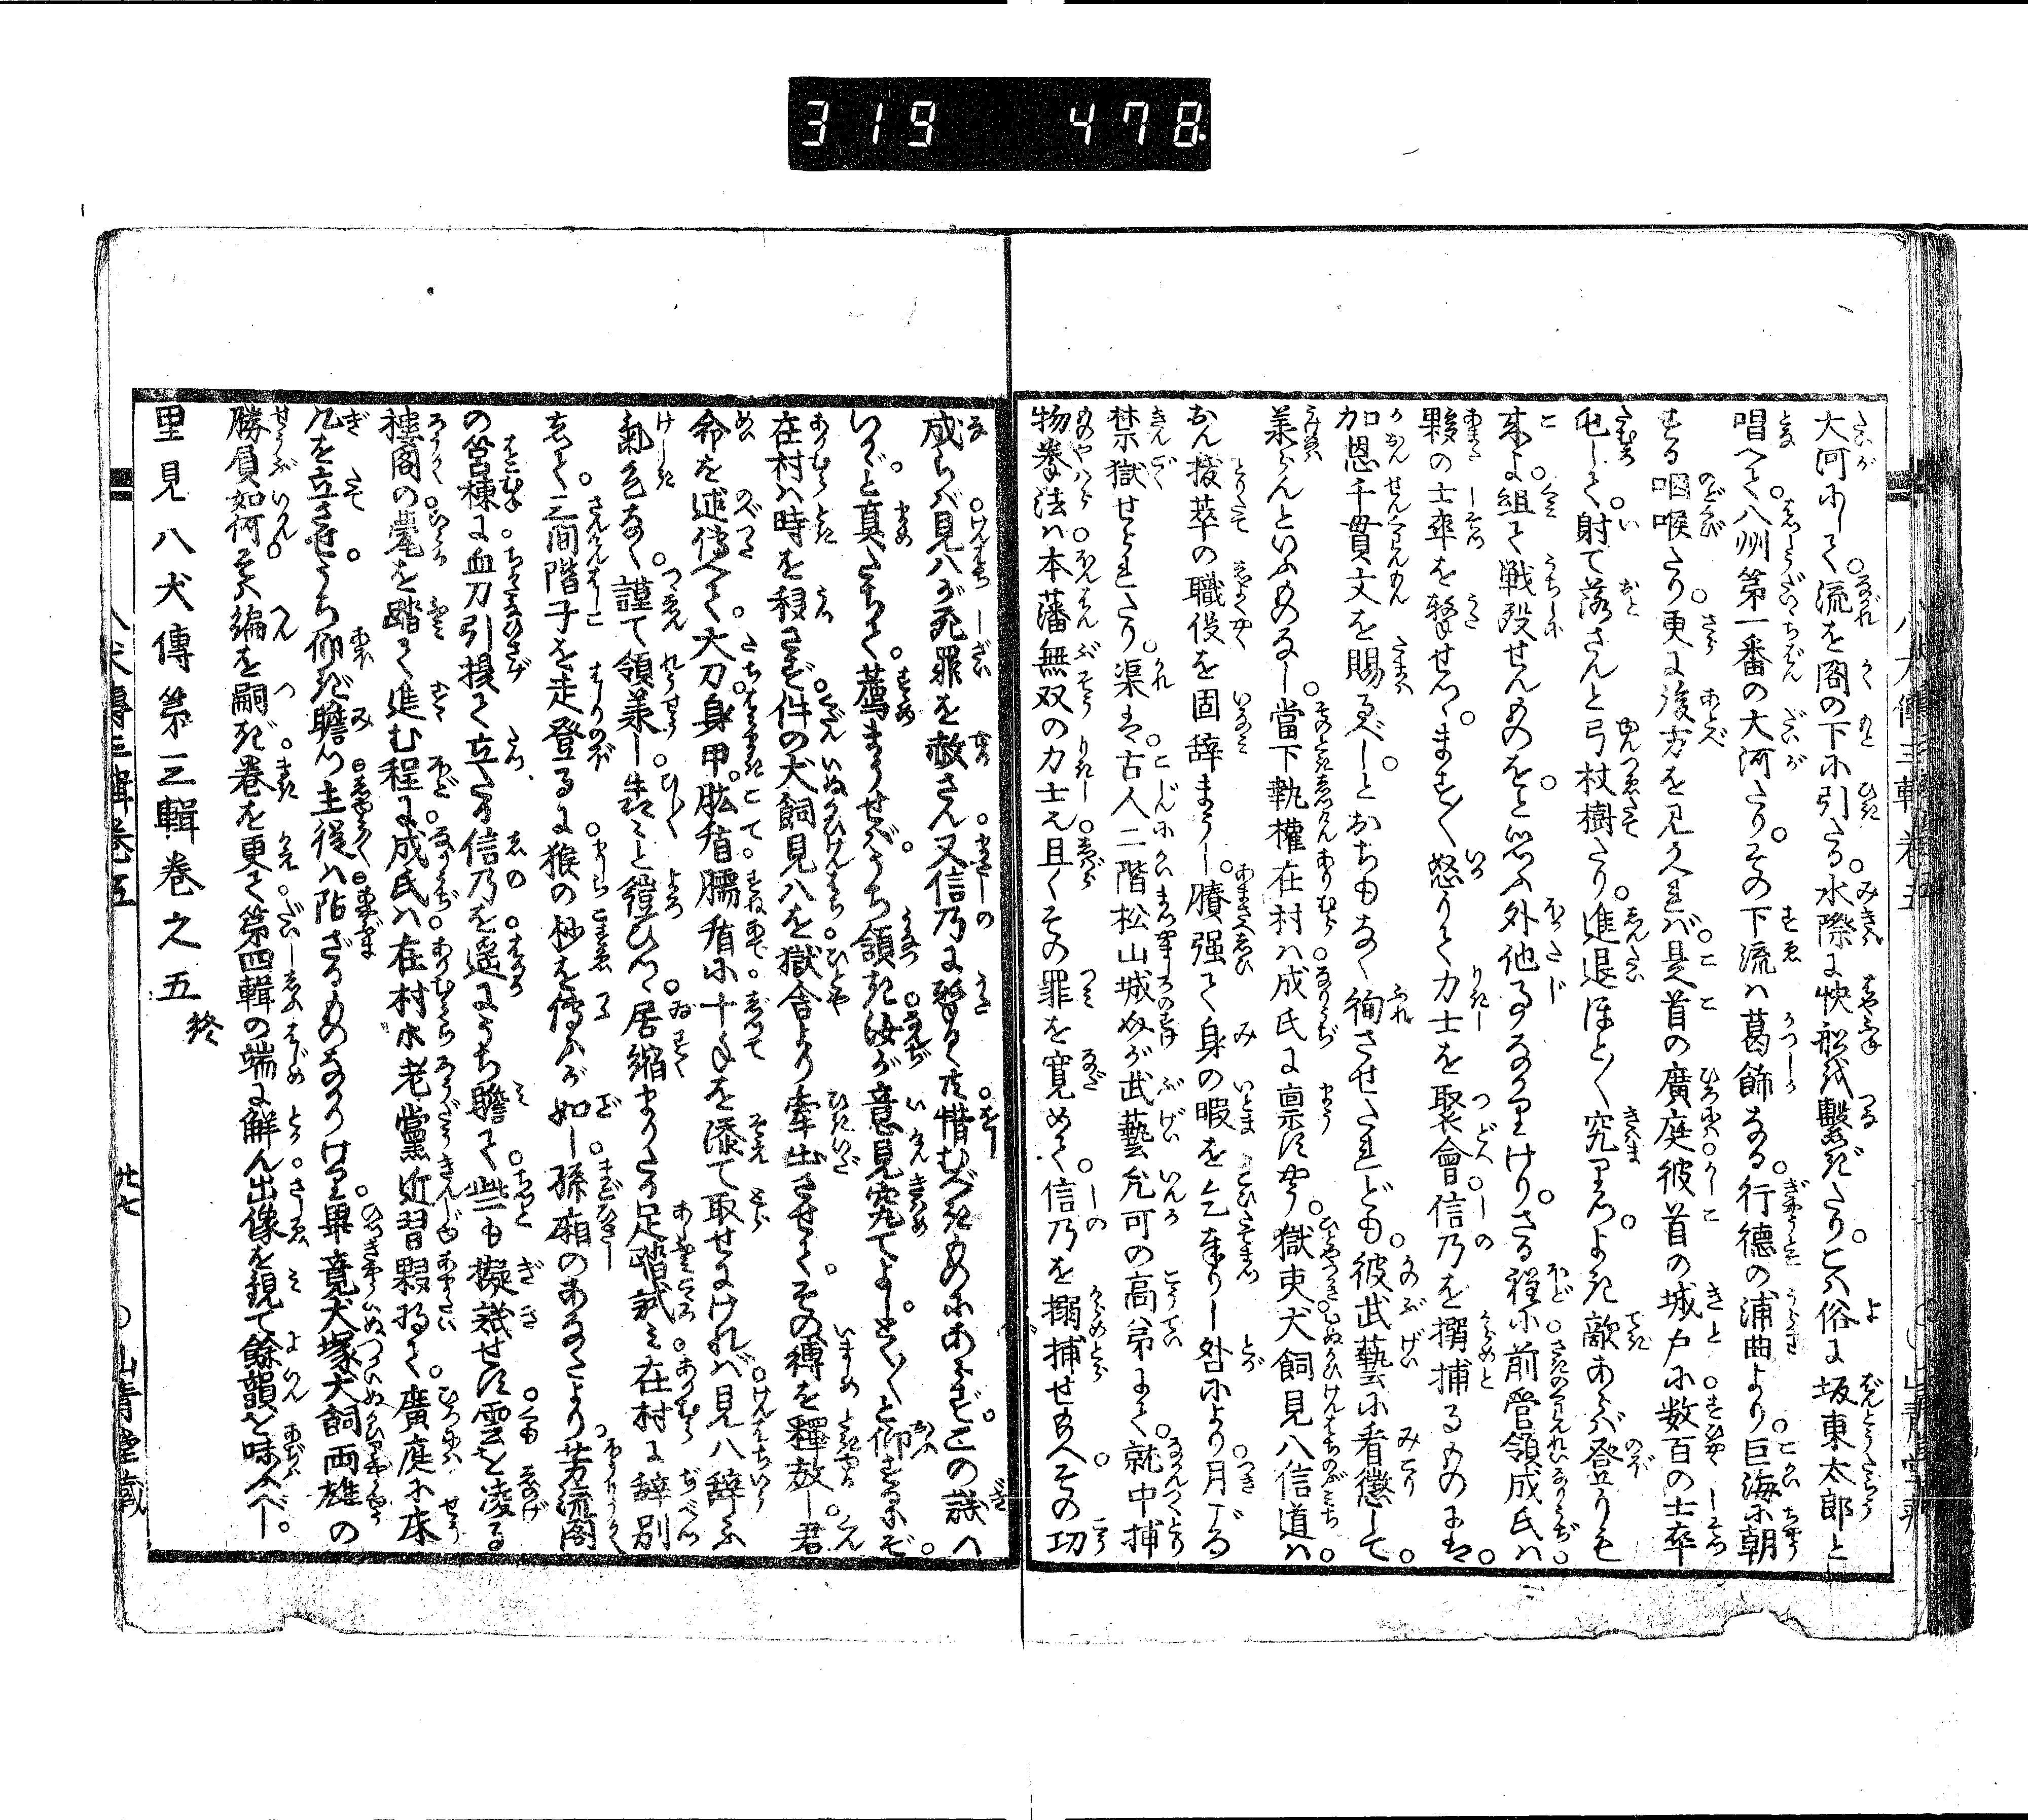 319 478
大河にして。流を閣の下に引たる。水際に快船を繋ぎたり。こは俗に坂東太郎と
唱へて。八州第一番の大河たり。その下流は葛飾なる。行徳の浦曲より。巨海に朝
する咽喉たり。更に後方を見かへれば。是首の廣庭彼首の城戸に。数百の士卒
屯して。射て落さんと弓杖樹たり。進退ほと〳〵究りつ。よき敵あらば登りも
来よ。組て戦殁せんものをと。思ふ外他事なかりけり。さる程に。前管領成氏は。
夥の士卒を撃せつ。ます〳〵怒りて。力士を聚會。信乃を搦捕るものには。
加恩千貫文を賜ふべし。とおちもなく徇させたれども。彼武藝に看懲して。
承らんといふものなし。當下執權在村は。成氏に禀すやう。獄吏犬飼見八信道は。
おん擢萃の職役を固辞まうし。賸強て身の暇を乞奉りし咎により。月ごろ
禁獄せられたり。渠は。古人二階松山城介が武藝允可の高弟にて。就中捕
物拳法は。本藩無双の力士也。且くその罪を寛めて。信乃を搦捕せ給へ。その功
成らば。見八が死罪を赦さん。又信乃に撃るゝとも。惜むべきものにあらず。この議へ
いかゞ。と真たちて。薦まうせば。うち頷き。汝が意見究てよし。とく〳〵と仰するにぞ。
在村は時を移さず。件の犬飼見八を獄舎より牽出させて。その縛を釋放し。君
命を述傳へて。大刀。身甲。肱盾。臑盾に十手を添て取せにければ。見八辞ふ
氣色なく。謹て領承し。恭しと縒ひつ。居縮まりたる足踏試み。在村に辞別
して。三間階子を走登るに。猴の杪を傳ふが如し。孫廂のあなたより。芳流閣
の筥棟に血刀引提て立たる信乃を遥にうち瞻て。些も擬議せず。雲を凌る
樓閣の甍を踏て進む程に。成氏は。在村水老黨近習夥将て。廣庭に床
几を立させ。うち仰ぎ瞻つ。主従は陷ざるものなかりけり。畢竟犬塚犬飼両雄の
勝負如何。そは編を嗣ぎ。巻を更て。第四輯の端に解ん。出像を観て餘韻を味ふべし。
里見八犬傳第三輯巻之五 終
八犬傳三輯巻五
廿七
〇山青堂藏